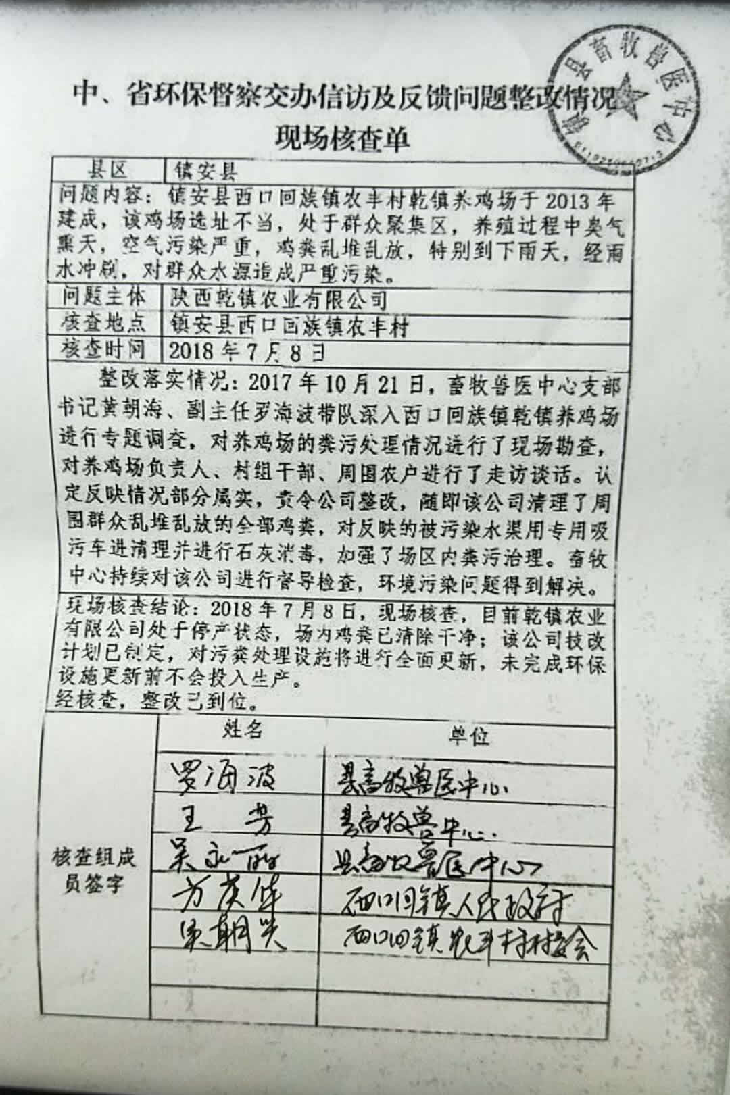 中、省环保督察交办信访及反馈问题整改情况
现场核查单
镇安县畜牧兽医中心
县区 镇安县
问题内容：镇安县西口回族镇农丰村乾镇养鸡场于2013年
建成，该鸡场选址不当，处于群众聚集区，养殖过程中臭气
熏天，空气污染严重，鸡粪乱堆乱放，特别到下雨天，经雨
水冲刷，对群众水源造成严重污染。
问题主体 陕西乾镇农业有限公司
核查地点 镇安县西口回族镇农丰村
核查时间 2018年7月8日
整改落实情况：2017年10月21日，畜牧兽医中心支部
书记黄朝海、副主任罗海波带队深入西口回族镇乾镇养鸡场
进行专题调查，对养鸡场的粪污处理情况进行了现场勘查，
对养鸡场负责人、村组干部、周围农户进行了走访谈话。认
定反映情况部分属实，责令公司整改，随即该公司清理了周
围群众乱堆乱放的全部鸡粪，对反映的被污染水渠用专用吸
污车进清理并进行石灰消毒，加强了场区内粪污治理。畜牧
中心持续对该公司进行督导检查，环境污染问题得到解决。
现场核查结论：2018年7月8日，现场核查，目前乾镇农业
有限公司处于停产状态，场内鸡粪已清除干净；该公司技改
计划已制定，对污粪处理设施将进行全面更新，未完成环保
设施更新前不会投入生产。
经核查，整改已到位。
姓名 单位
罗海波 县畜牧兽医中心
王芳 县畜牧兽中心
核查组成
员签字
吴永丽 县畜牧兽医中心
方英华 西口回镇人民政府
朝兴 西口回镇农丰村村委会